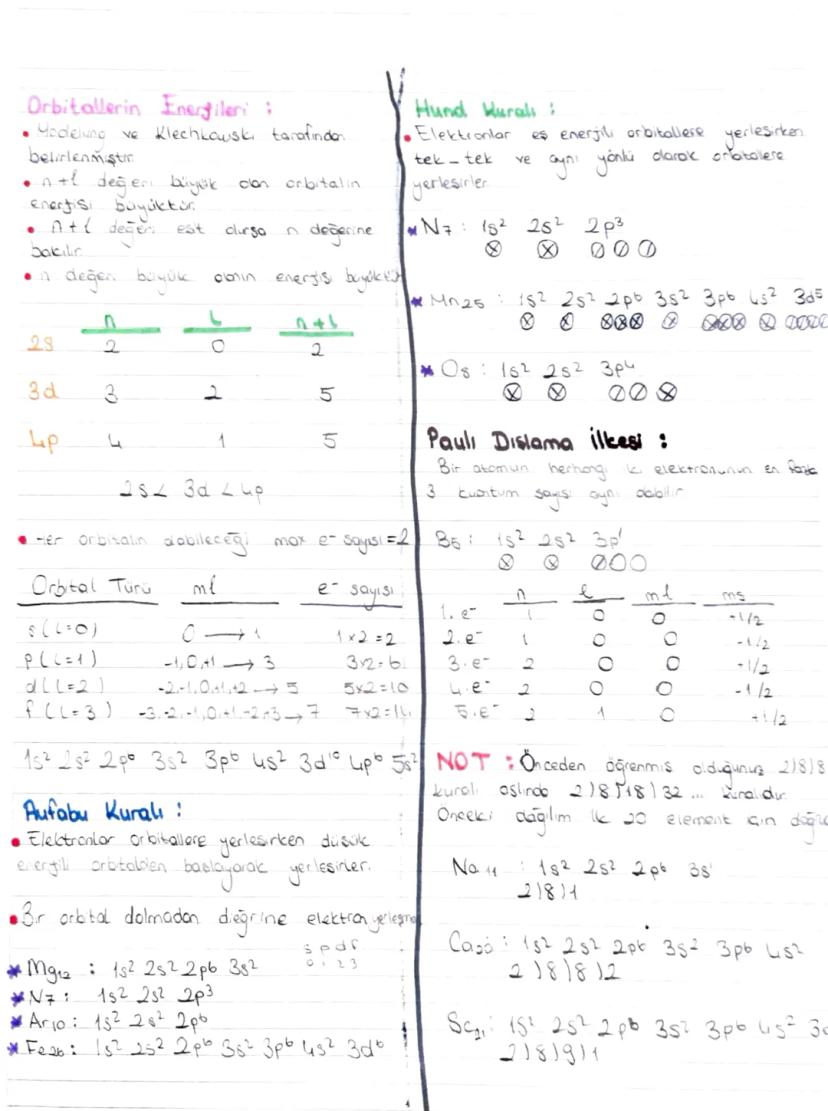 Orbitallerin Enerjileri :
• Madelung ve Klechkowski tarafından
belirlenmiştir.
• n+l değeri büyük olan orbitalin
enerjisi büyüktür.
• n+l değeri eşit olursa n değerine
bakılır.
• n değeri büyük olanın enerjisi büyüktür
n l n+l
2s 2 0 2
3d 3 2 5
4p 4 1 5
2s < 3d < 4p
• Her orbitalin alabileceği max e- sayısı = 2
Orbital Türü ml e- sayısı
s (l=0) 0 → 1 1x2=2
p (l=1) -1,0,+1 → 3 3x2=6
d (l=2) -2,-1,0,+1,+2 → 5 5x2=10
f (l=3) -3,-2,-1,0,+1,-2+3 → 7 7x2=14
1s² 2s² 2p⁶ 3s² 3p⁶ 4s² 3d¹⁰ 4p⁶ 5s²
Aufabu Kuralı :
• Elektronlar orbitallere yerleşirken düşük
enerjili orbitalden başlayarak yerleşirler.
• Bir orbital dolmadan diğerine elektron
s p d f
0 1 2 3
* Mg₁₂ : 1s² 2s² 2p⁶ 3s²
* N₇ : 1s² 2s² 2p³
* Ar₁₀ : 1s² 2s² 2p⁶
* Fe₂₆ : 1s² 2s² 2p⁶ 3s² 3p⁶ 4s² 3d⁶
Hund Kuralı :
• Elektronlar eş enerjili orbitallere yerleşirken
tek-tek ve aynı yönlü olarak orbitallere
yerleşirler.
* N₇ : 1s² 2s² 2p³
* Mn₂₅ : 1s² 2s² 2p⁶ 3s² 3p⁶ 4s² 3d⁵
* O₈ : 1s² 2s² 3p⁴
Pauli Dışlama İlkesi :
Bir atomun herhangi iki elektronunun en fazla
3 kuantum sayısı aynı olabilir.
B₅ : 1s² 2s² 3p¹
n l ml ms
1. e- 1 0 0 +1/2
2. e- 1 0 0 -1/2
3. e- 2 0 0 +1/2
4. e- 2 0 0 -1/2
5. e- 2 1 0 +1/2
NOT : Önceden öğrenmiş olduğunuz 2)8)8
kuralı aslında 2)8)18)32 ... kuralıdır.
Önceki dağılım ilk 20 element için
Na₁₁ : 1s² 2s² 2p⁶ 3s¹
2)8)1
Ca₂₀ : 1s² 2s² 2p⁶ 3s² 3p⁶ 4s²
2)8)8)2
Sc₂₁ : 1s² 2s² 2p⁶ 3s² 3p⁶ 4s²
2)8)9)1